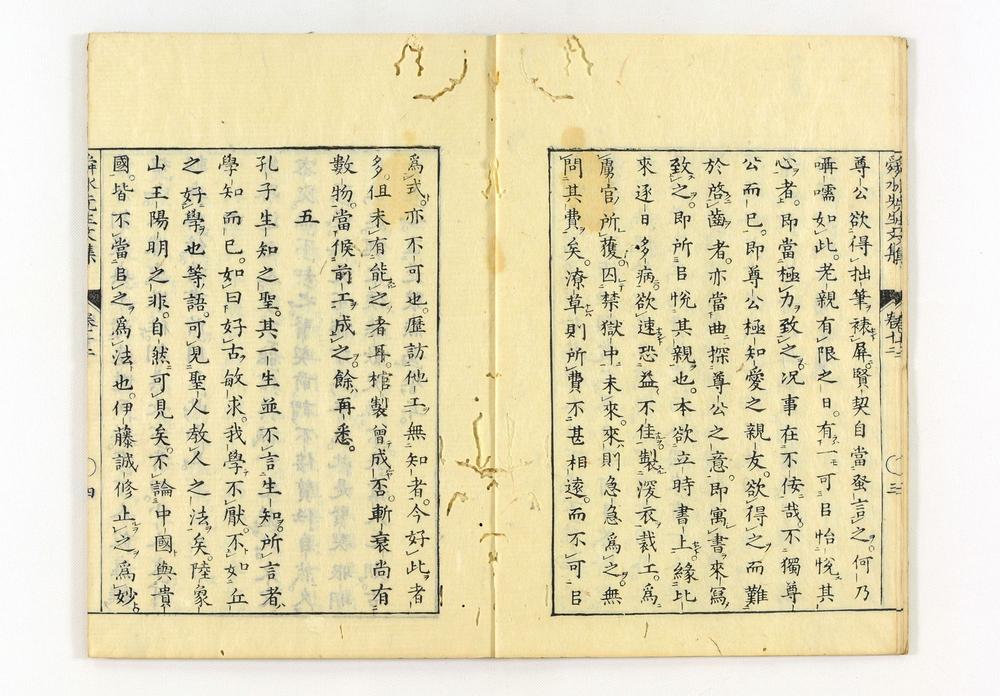 尊公欲得拙筆裱屏賢契自當蚤言之何乃
囁嚅如此老親有限之日有一可㠯怡悅其
心者即當極力致之况事在不佞哉不獨尊
公而已即尊公極知愛之親友欲得之而難
於啓齒者亦當曲探尊公之意即寓書來寫
致之即所㠯悅其親也本欲立時書上緣比
來逐日多病欲速恐益不佳製深衣裁工爲
虜官所獲囚禁獄中未來來則急急爲之無
問其費矣潦草則所費不甚相遠而不可㠯
爲式亦不可也歷訪他工無知者今好此者
多但未有能之者耳棺製曾成否斬衰尚有
數物當候前工成之餘再悉
五
孔子生知之聖其一生並不言生知所言者
學知而已如曰好古敏求我學不厭不如丘
之好學也等語可見聖人教人之法矣陸象
山王陽明之非自然可見矣不論中國與貴
國皆不當㠯之爲法也伊藤誠修止之爲妙
舜水先生文集
卷十二
四